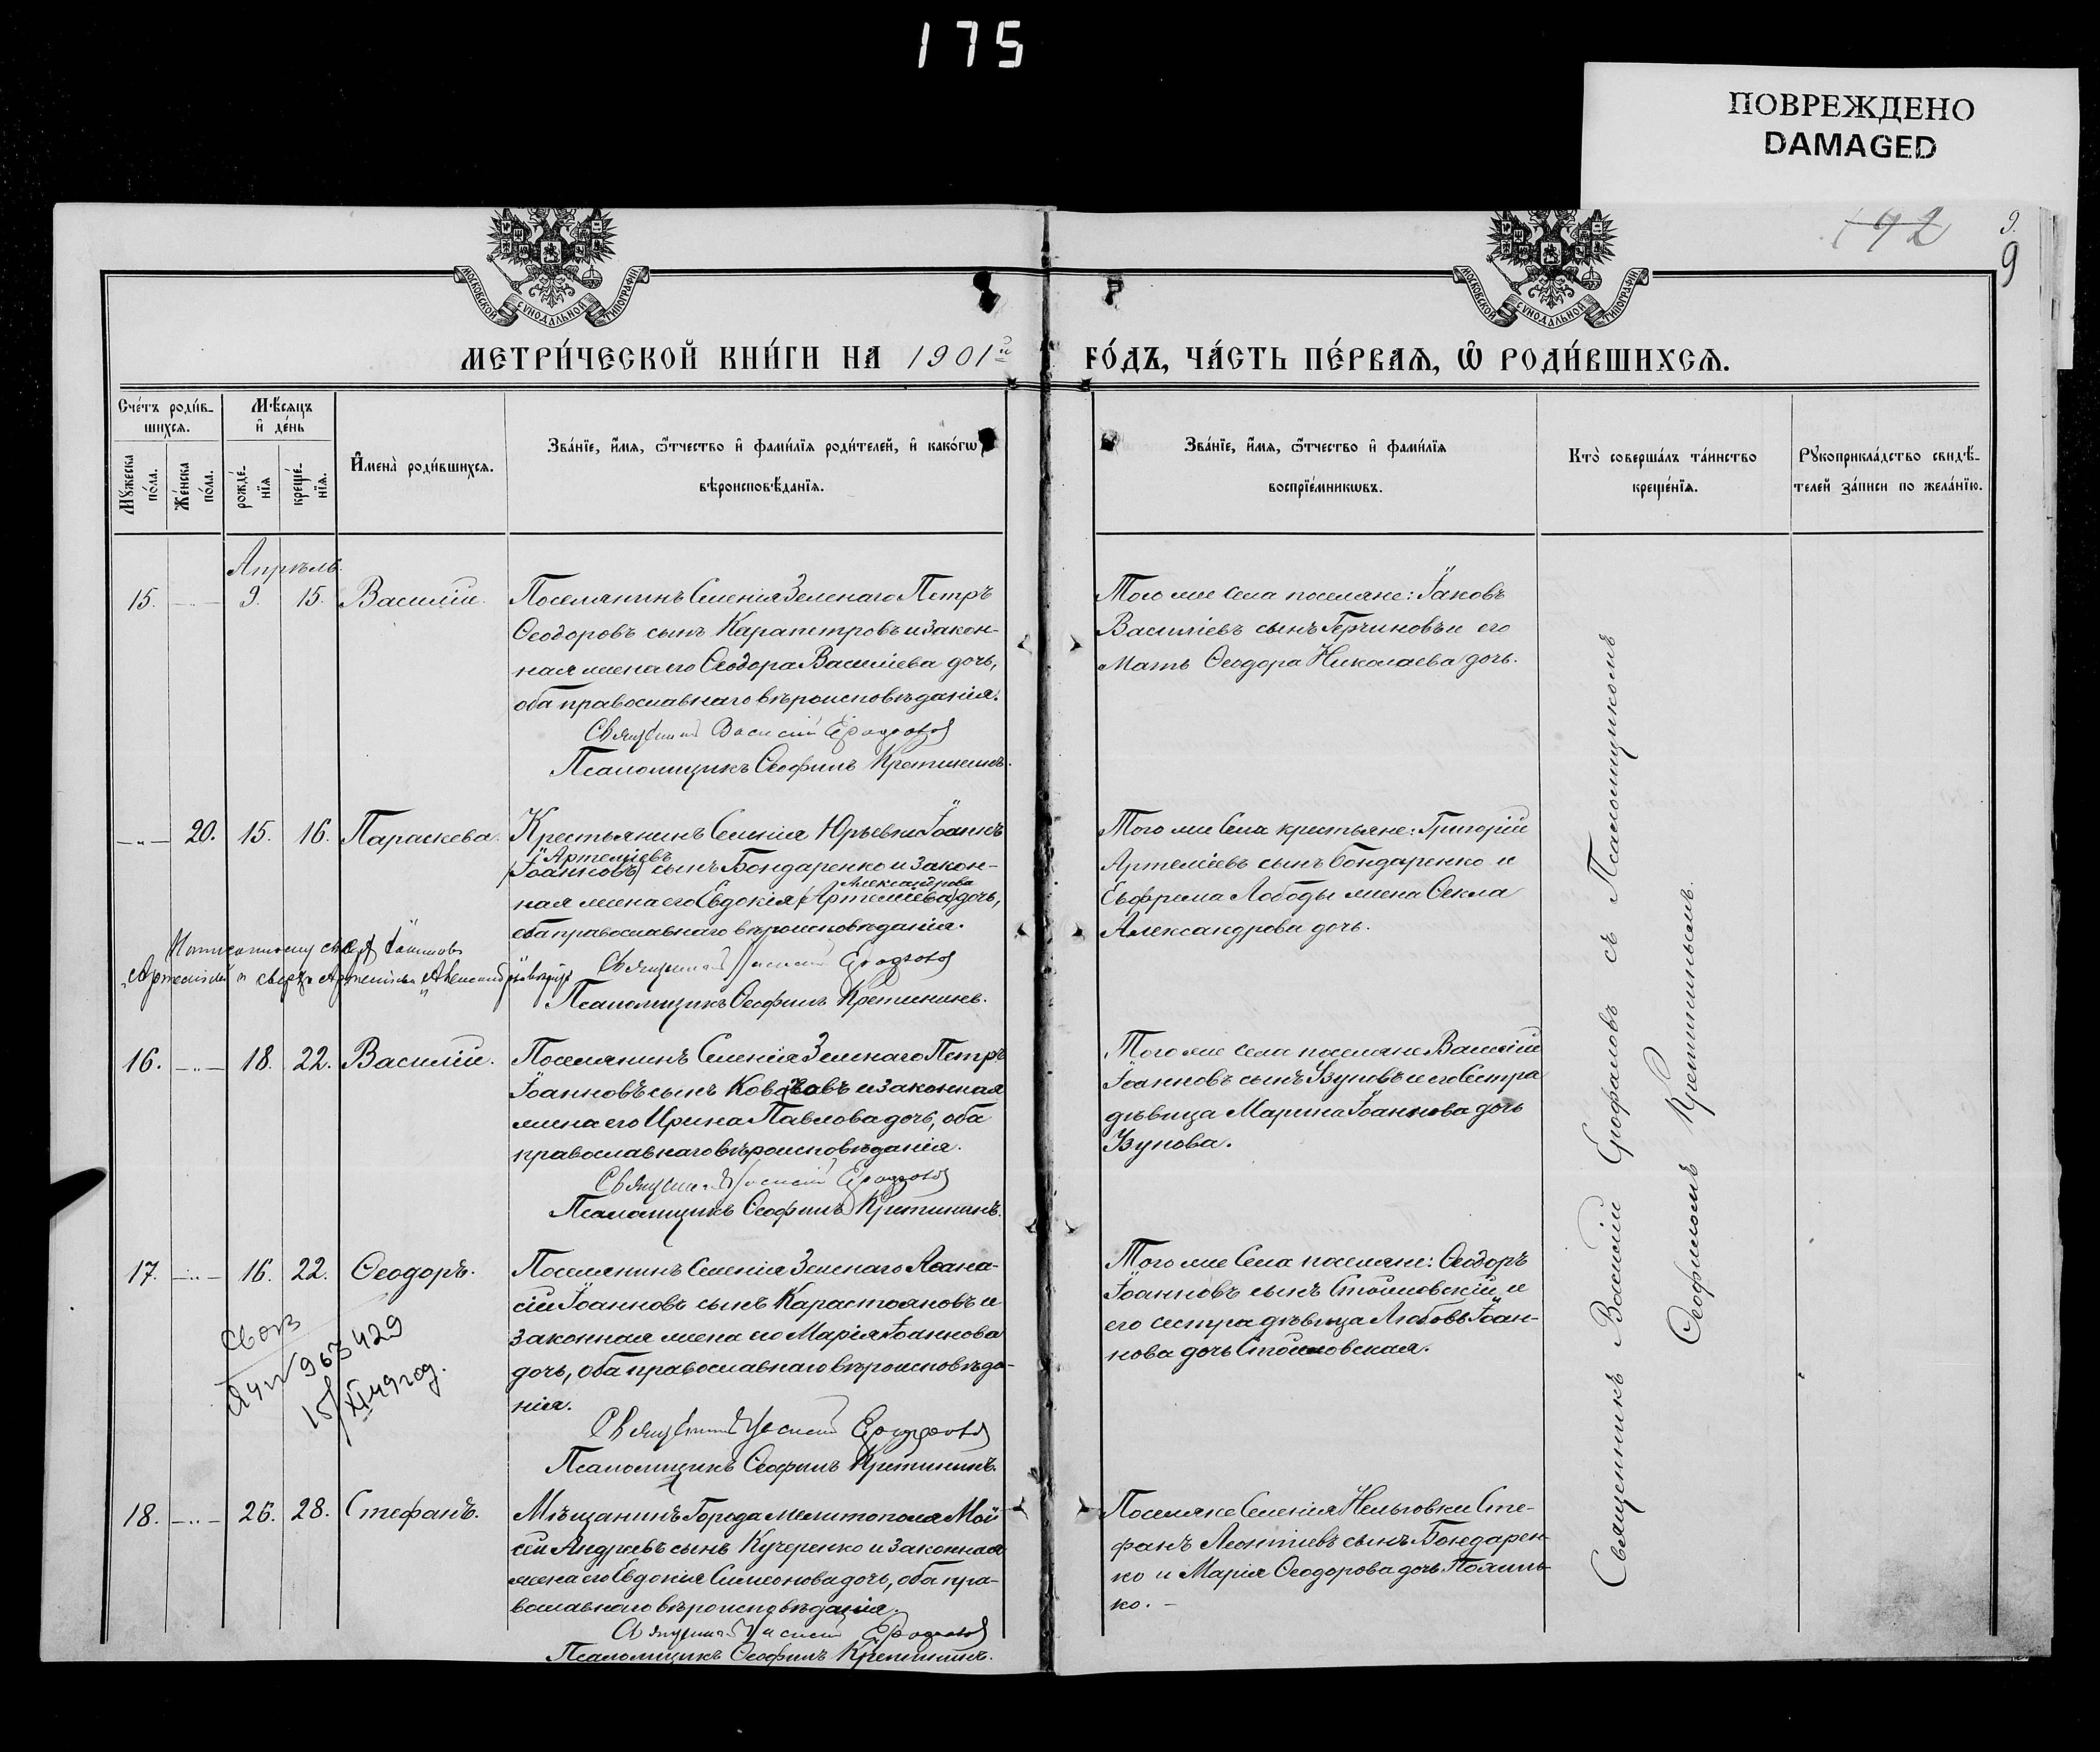 175
ПОВРЕЖДЕНО
DAMAGED
192
9.
9
МОСКОВСКОЙ СѴНОДАЛЬНОЙ ТИПОГРАФІИ
МОСКОВСКОЙ СѴНОДАЛЬНОЙ ТИПОГРАФІИ
МЕТРИ́ЧЕСКОЙ КНИ́ГИ НА 1901й
ГО́ДЪ, ЧА́СТЬ ПЕ́РВАѦ, Ѡ҆ РОДИ́ВШИХСѦ.
Сче́тъ роди́в-
шихсѧ.
Мѣ́сѧцъ
и҆ де́нь
Мꙋ́жеска
по́ла.
Же́нска
по́ла.
рожде́-
нїѧ
креще́-
нїѧ.
И҆мена̀ роди́вшихсѧ.
Зва́нїе, и҆́мѧ, ѻ҆́тчество и҆ фами́лїѧ роди́телей, и҆ како́гѡ
вѣроисповѣ́данїѧ.
Зва́нїе, и҆́мѧ, ѻ҆́тчество и҆ фами́лїѧ
воспрїе́мникѡвъ.
Кто̀ соверша́лъ та́инство
креще́нїѧ.
Рꙋкоприкла́дство свидѣ́-
телей за́писи по жела́нїю.
Апрѣль.
15. 9. 15. Василій.
Поселянинъ Селенія Зеленаго Петръ
Ѳеодоровъ сынъ Карапетровъ и закон-
ная жена его Ѳеодора Василіева дочь,
оба православнаго вѣроисповѣданія.
Священникъ Василій
Псаломщикъ Ѳеофилъ Кретининъ.
Того же Села поселяне: Іаковъ
Василіевъ сынъ Герчиновъ и его
Мать Ѳеодора Николаева дочь.
20. 15. 16. Параскева.
Крестьянинъ Селенія Юрьевки Іоаннъ
"Артеміевъ
(Іоанновъ) сынъ Бондаренко и закон-
Александрова
ная жена его Евдокія (Артеміева) дочь,
оба православнаго вѣроисповѣданія.
Священникъ Василій
Псаломщикъ Ѳеофилъ Кретининъ.
Того же Села крестьяне: Григорій
Артеміевъ сынъ Бондаренко и
Евфрема Лободы жена Ѳекла
Александрова дочь.
16. 18. 22. Василій.
Поселянинъ Селенія Зеленаго Петръ
Іоанновъ сынъ и законная
жена его Ирина Павлова дочь, оба
православнаго вѣроисповѣданія.
Священникъ Василій
Псаломщикъ Ѳеофилъ Кретининъ.
Того же села поселяне Василій
Іоанновъ сынъ Узуновъ и его Сестра
дѣвица Марина Іоаннова дочь
Узунова.
17. 16. 22. Ѳеодоръ.
Поселянинъ Селенія Зеленаго Аѳана-
сій Іоанновъ сынъ Карастояновъ и
законная жена его Марія Іоаннова
дочь, оба православнаго вѣроисповѣда-
нія.
Священникъ Василій
Псаломщикъ Ѳеофилъ Кретининъ.
Того же Села поселяне: Ѳеодоръ
Іоанновъ сынъ Стоиловскій и
его сестра дѣвица Любовь Іоан-
нова дочь Стоиловская.
967429
18. 26. 28. Стефанъ.
Мѣщанинъ Города Мелитополя Мои
сей Андреевъ сынъ Кучеренко и законная
жена его Евдокія Симеонова дочь, оба пра-
вославнаго вѣроисповѣданія.
Священникъ Василій
Псаломщикъ Ѳеофилъ Кретининъ.
Поселяне Селенія Нельговки Сте-
фанъ Леонтіевъ сынъ Бондарен-
ко и Марія Ѳеодорова дочь
ко. –
Священникъ Василій Ерофаловъ съ Псаломщикомъ
Ѳеофиломъ Кретининымъ.